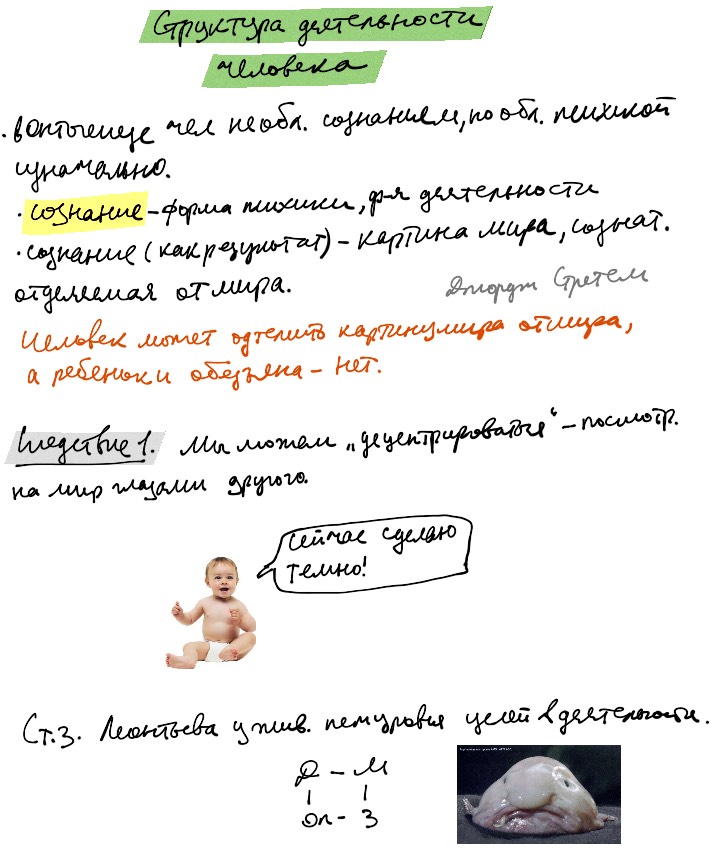 Структура деятельности
человека
· В онтогенезе чел не обл. сознанием, но обл. психикой
изначально.
· сознание – форма психики, ф-я деятельности
· сознание (как результат) – картина мира, сознат.
отделяемая от мира.
Джордж Стретем
Человек может отделить картину мира от мира,
а ребенок и обезьяна – нет.
Следствие 1. Мы можем „децентрироваться“ – посмотр.
на мир глазами другого.
Сейчас сделаю
темно!
Ст.з. Леонтьева у жив. нет уровня целей в деятельности.
Д – М
| |
Оп – З